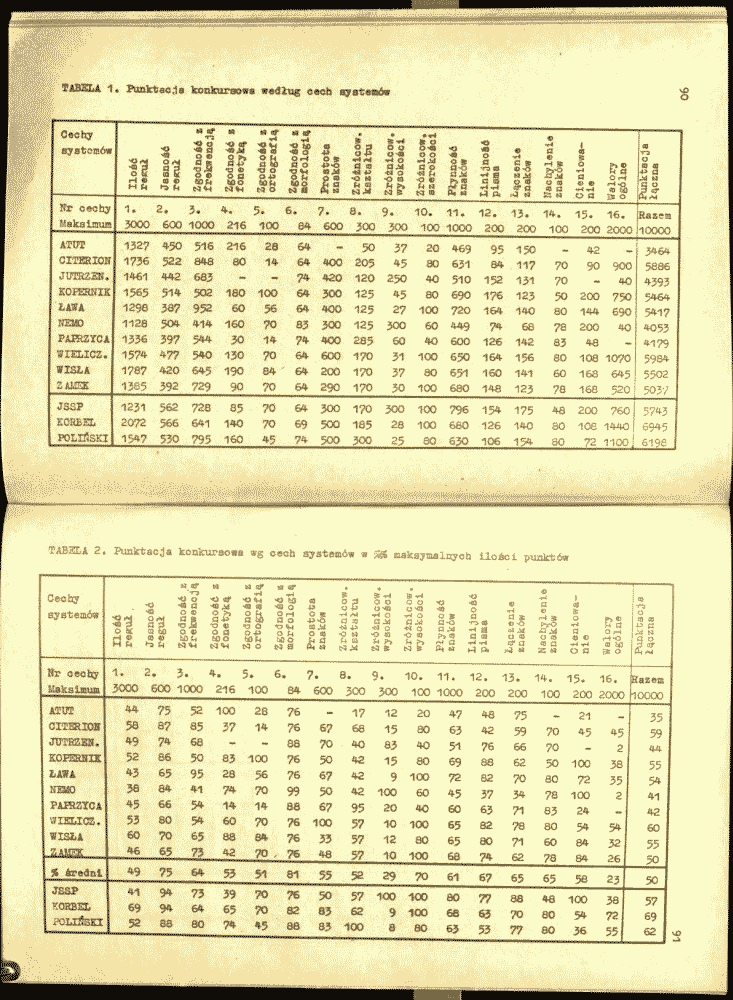 TABELA 1. Punktacja konkursowa według cech systemów
90
Cechy systemów | Ilość reguł | Jasność reguł | Zgodność z frekwencją | Zgodność z fonetyką | Zgodność z ortografią | Zgodność z morfologią | Prostota znaków | Zróżnicow. kształtu | Zróżnicow. wysokości | Zróżnicow. szerokości | Płynność znaków | Linijność pisma | Łączenie znaków | Nachylenie znaków | Cieniowa-nie | Walory ogólne | Punktacja łączna
Nr cechy 1. 2. 3. 4. 5. 6. 7. 8. 9. 10. 11. 12. 13. 14. 15. 16. Razem
Maksimum 3000 600 1000 216 100 84 600 300 300 100 1000 200 200 100 200 2000 10000
ATUT 1327 450 516 216 28 64 - 50 37 20 469 95 150 - 42 - 3464
CITERION 1736 522 848 80 14 64 400 205 45 80 631 84 117 70 90 900 5886
JUTRZEN. 1461 442 683 - - 74 420 120 250 40 510 152 131 70 - 40 4393
KOPERNIK 1565 514 502 180 100 64 300 125 45 80 690 176 123 50 200 750 5464
ŁAWA 1298 387 952 60 56 64 400 125 27 100 720 164 140 80 144 690 5417
NEMO 1128 504 414 160 70 83 300 125 300 60 449 74 68 78 200 40 4053
PAPRZYCA 1336 397 544 30 14 74 400 285 60 40 600 126 142 83 48 - 4179
WIELICZ. 1574 477 540 130 70 64 600 170 31 100 650 164 156 80 108 1070 5984
WISŁA 1787 420 645 190 84 64 200 170 37 80 651 160 141 60 168 645 5502
ZAMEK 1385 392 729 90 70 64 290 170 30 100 680 148 123 78 168 520 5037
JSSP 1231 562 728 85 70 64 300 170 300 100 796 154 175 48 200 760 5743
KORBEL 2072 566 641 140 70 69 500 185 28 100 680 126 140 80 108 1440 6945
POLIŃSKI 1547 530 795 160 45 74 500 300 25 80 630 106 154 80 72 1100 6198
TABELA 2. Punktacja konkursowa wg cech systemów w %% maksymalnych ilości punktów
Cechy systemów | Ilość reguł | Jasność reguł | Zgodność z frekwencją | Zgodność z fonetyką | Zgodność z ortografią | Zgodność z morfologią | Prostota znaków | Zróżnicow. kształtu | Zróżnicow. wysokości | Zróżnicow. wysokości | Płynność znaków | Linijność pisma | Łączenie znaków | Nachylenie znaków | Cieniowa-nie | Walory ogólne | Punktacja łączna
Nr cechy 1. 2. 3. 4. 5. 6. 7. 8. 9. 10. 11. 12. 13. 14. 15. 16. Razem
Maksimum 3000 600 1000 216 100 84 600 300 300 100 1000 200 200 100 200 2000 10000
ATUT 44 75 52 100 28 76 - 17 12 20 47 48 75 - 21 - 35
CITERION 58 87 85 37 14 76 67 68 15 80 63 42 59 70 45 45 59
JUTRZEN. 49 74 68 - - 88 70 40 83 40 51 76 66 70 - 2 44
KOPERNIK 52 86 50 83 100 76 50 42 15 80 69 88 62 50 100 38 55
ŁAWA 43 65 95 28 56 76 67 42 9 100 72 82 70 80 72 35 54
NEMO 38 84 41 74 70 99 50 42 100 60 45 37 34 78 100 2 41
PAPRZYCA 45 66 54 14 14 88 67 95 20 40 60 63 71 83 24 - 42
WIELICZ. 53 80 54 60 70 76 100 57 10 100 65 82 78 80 54 54 60
WISŁA 60 70 65 88 84 76 33 57 12 80 65 80 71 60 84 32 55
ZAMEK 46 65 73 42 70 76 48 57 10 100 68 74 62 78 84 26 50
% średni 49 75 64 53 51 81 55 52 29 70 61 67 65 65 58 23 50
JSSP 41 94 73 39 70 76 50 57 100 100 80 77 88 48 100 38 57
KORBEL 69 94 64 65 70 82 83 62 9 100 68 63 70 80 54 72 69
POLIŃSKI 52 88 80 74 45 88 83 100 8 80 63 53 77 80 36 55 62
91